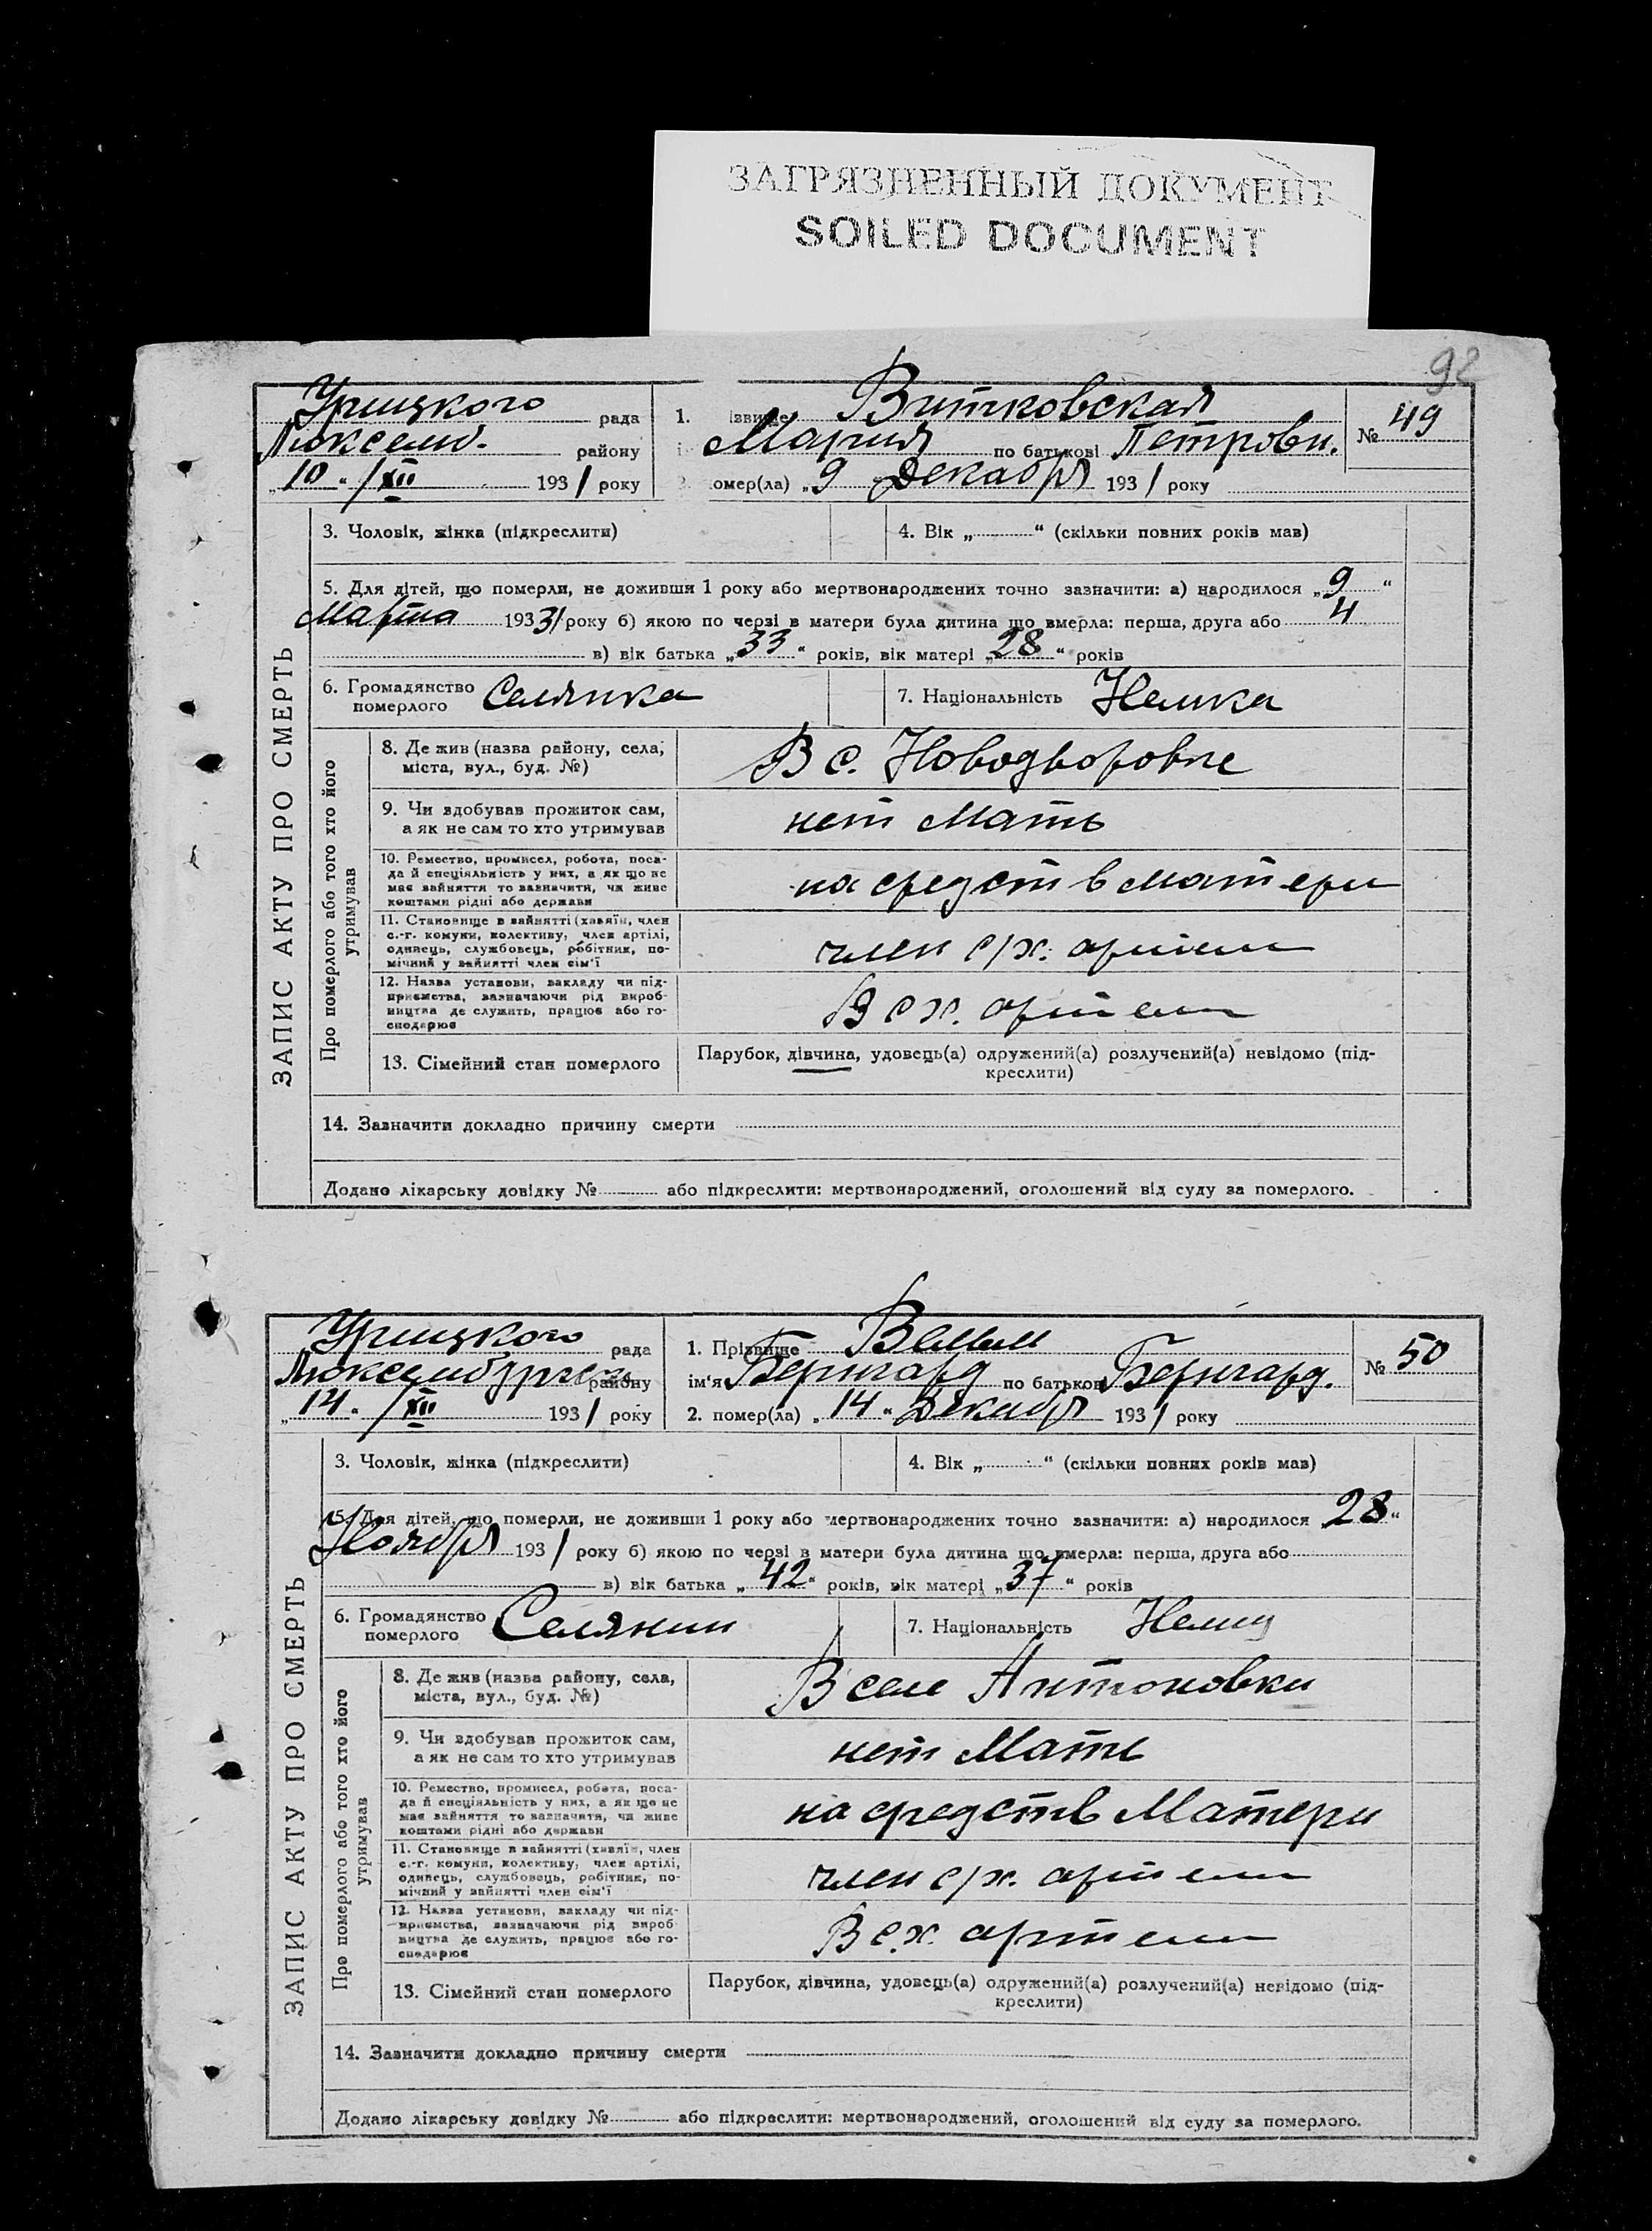 ЗАГРЯЗНЕННЫЙ ДОКУМЕНТ
SOILED DOCUMENT
92
ЗАПИС АКТУ ПРО СМЕРТЬ
Урицкого рада
Люксемб. району
„10“ /XII 1931 року
1. ізвище Витковская
Мария по батькові Петровн.
омер(ла) „9 Декабря 1931 року
№ 49
3. Чоловік, жінка (підкреслити)
4. Вік „ “ (скільки повних років мав)
5. Для дітей, що померли, не доживши 1 року або мертвонароджених точно зазначити: а) народилося „9“
Марта 1931 року б) якою по черзі в матери була дитина що вмерла: перша, друга або 4
в) вік батька „33“ років, вік матері „28“ років
6. Громадянство померлого Селянка
7. Національність Немка
Про померлого або того хто його утримував
8. Де жив (назва району, села, міста, вул., буд. №)
В с. Новодворовке
9. Чи здобував прожиток сам, а як не сам то хто утримував
нет Мать
10. Ремество, промисел, робота, посада й спеціяльність у них, а як що не має зайняття то зазначити, чи живе коштами рідні або держави
на средств матери
11. Становище в зайнятті (хазяїн, член с.-г. комуни, колективу, член артілі, одинець, службовець, робітник, помічний у зайнятті член сім'ї
член с/х. артели
12. Назва установи, закладу чи підприємства, зазначаючи рід виробництва де служить, працює або господарює
В с х. артели
13. Сімейний стан померлого
Парубок, дівчина, удовець(а) одружений(а) розлучений(а) невідомо (підкреслити)
14. Зазначити докладно причину смерти
Додано лікарську довідку № або підкреслити: мертвонароджений, оголошений від суду за померлого.
ЗАПИС АКТУ ПРО СМЕРТЬ
Урицкого рада
району
„14“ /XII 1931 року
1. Прізвище
ім'я Бернгард по батькові Бернгард.
2. помер(ла) „14“ Декабря 1931 року
№ 50
3. Чоловік, жінка (підкреслити)
4. Вік „ “ (скільки повних років мав)
5. Для дітей, що померли, не доживши 1 року або мертвонароджених точно зазначити: а) народилося „28“
Ноября 1931 року б) якою по черзі в матери була дитина що вмерла: перша, друга або
в) вік батька „42“ років, вік матері „37“ років
6. Громадянство померлого Селянин
7. Національність Немц
Про померлого або того хто його утримував
8. Де жив (назва району, села, міста, вул., буд. №)
В селе Антоновки
9. Чи здобував прожиток сам, а як не сам то хто утримував
нет Мать
10. Ремество, промисел, робота, посада й спеціяльність у них, а як що не має зайняття то зазначити, чи живе коштами рідні або держави
на средств Матери
11. Становище в зайнятті (хазяїн, член с.-г. комуни, колективу, член артілі, одинець, службовець, робітник, помічний у зайнятті член сім'ї
член с/х. артели
12. Назва установи, закладу чи підприємства, зазначаючи рід виробництва де служить, працює або господарює
В с.х. артели
13. Сімейний стан померлого
Парубок, дівчина, удовець(а) одружений(а) розлучений(а) невідомо (підкреслити)
14. Зазначити докладно причину смерти
Додано лікарську довідку № або підкреслити: мертвонароджений, оголошений від суду за померлого.